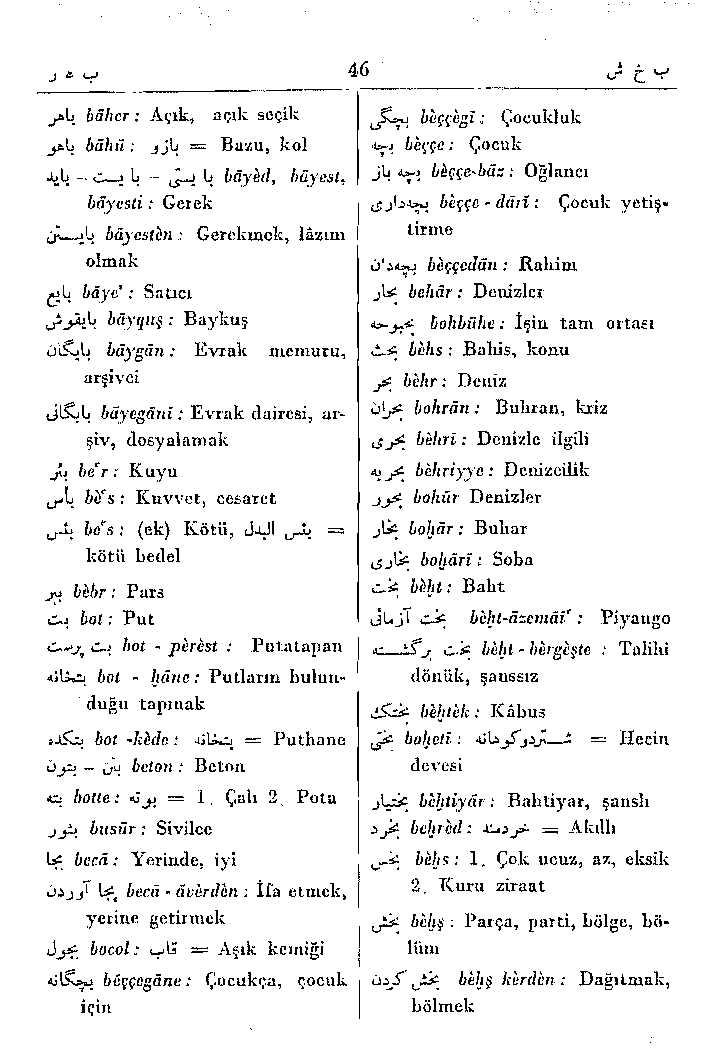 ب ه ر
46
ب خ ش
باهر bāher: Açık, açık seçik
باهو bāhū: بازو = Bazu, kol
باید - با یست - با یستی bāyèd, bāyest,
bāyesti: Gerek
بایستن bāyestèn: Gerekmek, lâzım
olmak
بایع bāye': Satıcı
بایقوش bāyquş: Baykuş
بایگان bāygān: Evrak memuru,
arşivci
بایگانی bāyegānī: Evrak dairesi, ar-
şiv, dosyalamak
بئر be'r: Kuyu
بأس bè's: Kuvvet, cesaret
بئس be's: (ek) Kötü, بئس البدل =
kötü bedel
ببر bèbr: Pars
بت bot: Put
بت پرست bot - pèrèst : Putatapan
بتخانه bot - ḫāne: Putların bulun-
duğu tapınak
بتکده bot -kède: بتخانه = Puthane
بتن - بتون beton: Beton
بته botte: بوته = 1. Çalı 2. Pota
بثور busūr: Sivilce
بجا becā: Yerinde, iyi
بجا آوردن becā - āvèrdèn: İfa etmek,
yerine getirmek
بجول bocol: قاب = Aşık kemiği
بچگانه bèççegāne: Çocukça, çocuk
için
بچگی bèççègī: Çocukluk
بچه bèççe: Çocuk
بچه باز bèççe-bāz: Oğlancı
بچه‌داری bèççe - dārī: Çocuk yetiş-
tirme
بچه‌دان bèççedān: Rahim
بحار behār: Denizler
بحبوحه bohbūhe: İşin tam ortası
بحث bèhs: Bahis, konu
بحر bèhr: Deniz
بحران bohrān: Buhran, kriz
بحری bèhrī: Denizle ilgili
بحریه bèhriyye: Denizcilik
بحور bohūr Denizler
بخار boḫār: Buhar
بخاری boḫārī: Soba
بخت bèḫt: Baht
بخت آزمائی bèḫt-āzemāī': Piyango
بخت برگشته bèḫt - bèrgeşte : Talihi
dönük, şanssız
بختک bèḫtèk: Kâbus
بختی boḫetī: شتر دو کوهانه = Hecin
devesi
بختیار bèḫtiyār: Bahtiyar, şanslı
بخرد beḫrèd: خردمند = Akıllı
بخس bèḫs: 1. Çok ucuz, az, eksik
2. Kuru ziraat
بخش bèḫş: Parça, parti, bölge, bö-
lüm
بخش کردن bèḫş kèrdèn: Dağıtmak,
bölmek